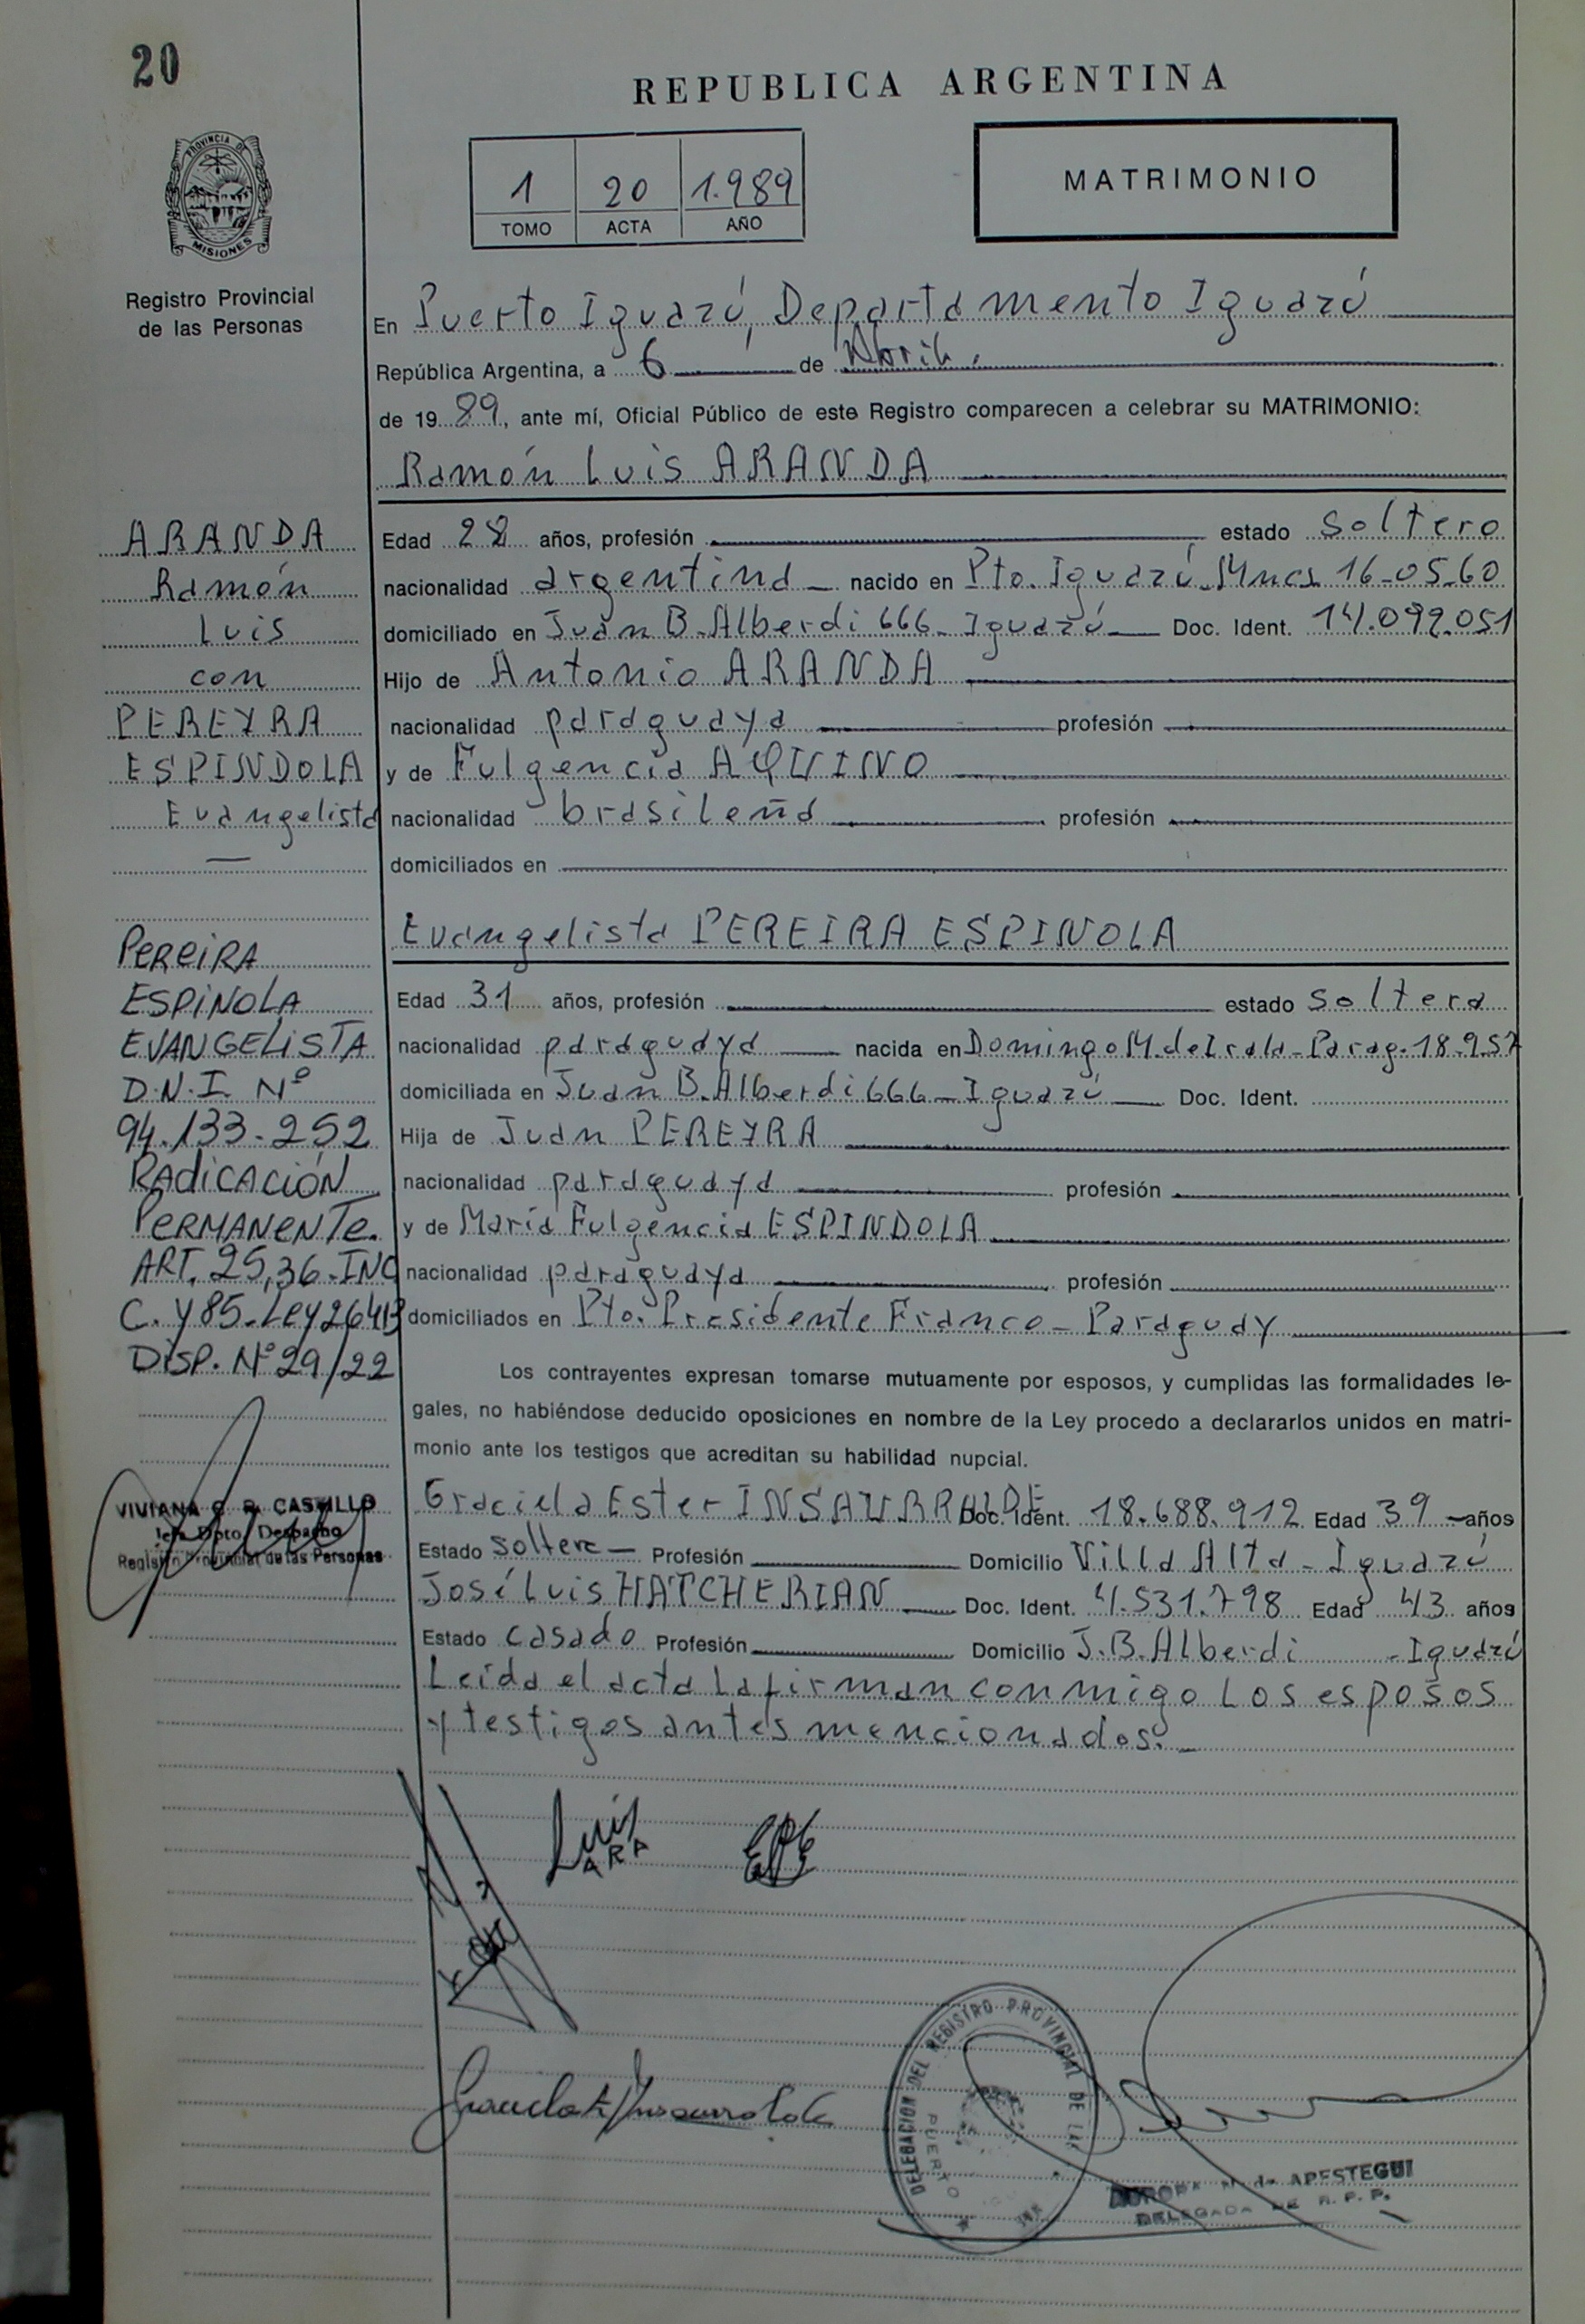 20
REPUBLICA ARGENTINA
PROVINCIA DE
MISIONES
1 20 1.989
TOMO ACTA AÑO
MATRIMONIO
Registro Provincial
de las Personas
En Puerto Iguazú, Departamento Iguazú
República Argentina, a 6 de Abril.
de 1989, ante mí, Oficial Público de este Registro comparecen a celebrar su MATRIMONIO:
Ramón Luis ARANDA
ARANDA
Ramón
Luis
con
PEREYRA
ESPINDOLA
Evangelista
Edad 28 años, profesión estado soltero
nacionalidad argentina nacido en Pto. Iguazú Mnes 16-05-60
domiciliado en Juan B. Alberdi 666 - Iguazú Doc. Ident. 14.092.051
Hijo de Antonio ARANDA
nacionalidad paraguaya profesión
y de Fulgencia AQUINO
nacionalidad brasileña profesión
domiciliados en
Evangelista PEREIRA ESPINOLA
PEREIRA
ESPINOLA
EVANGELISTA
D.N.I. Nº
94.133-252
RADICACIÓN
PERMANENTE.
ART. 25,36-INC
C. Y 85-LEY 26413
DISP. Nº 29/22
Edad 31 años, profesión estado soltera
nacionalidad paraguaya nacida en Domingo M. de Irala - Parag. 18.9.57
domiciliada en Juan B. Alberdi 666 - Iguazú Doc. Ident.
Hija de Juan PEREYRA
nacionalidad paraguaya profesión
y de María Fulgencia ESPINDOLA
nacionalidad paraguaya profesión
domiciliados en Pto. Presidente Franco - Paraguay
Los contrayentes expresan tomarse mutuamente por esposos, y cumplidas las formalidades le-
gales, no habiéndose deducido oposiciones en nombre de la Ley procedo a declararlos unidos en matri-
monio ante los testigos que acreditan su habilidad nupcial.
VIVIANA CASTILLO
Jefa Dpto. Despacho
Registro Provincial de las Personas
Graciela Ester INSAURRALDE Doc. Ident. 18.688.912 Edad 39 años
Estado soltera Profesión Domicilio Villa Alta - Iguazú
José Luis HATCHERIAN Doc. Ident. 4.531.798 Edad 43 años
Estado casado Profesión Domicilio J.B. Alberdi - Iguazú
Leída el acta la firman conmigo los esposos
y testigos antes mencionados.
Luis
ARA
DELEGACION DEL REGISTRO PROVINCIAL DE LAS
PUERTO
de APESTEGUI
DELEGADA DE R. P. P.